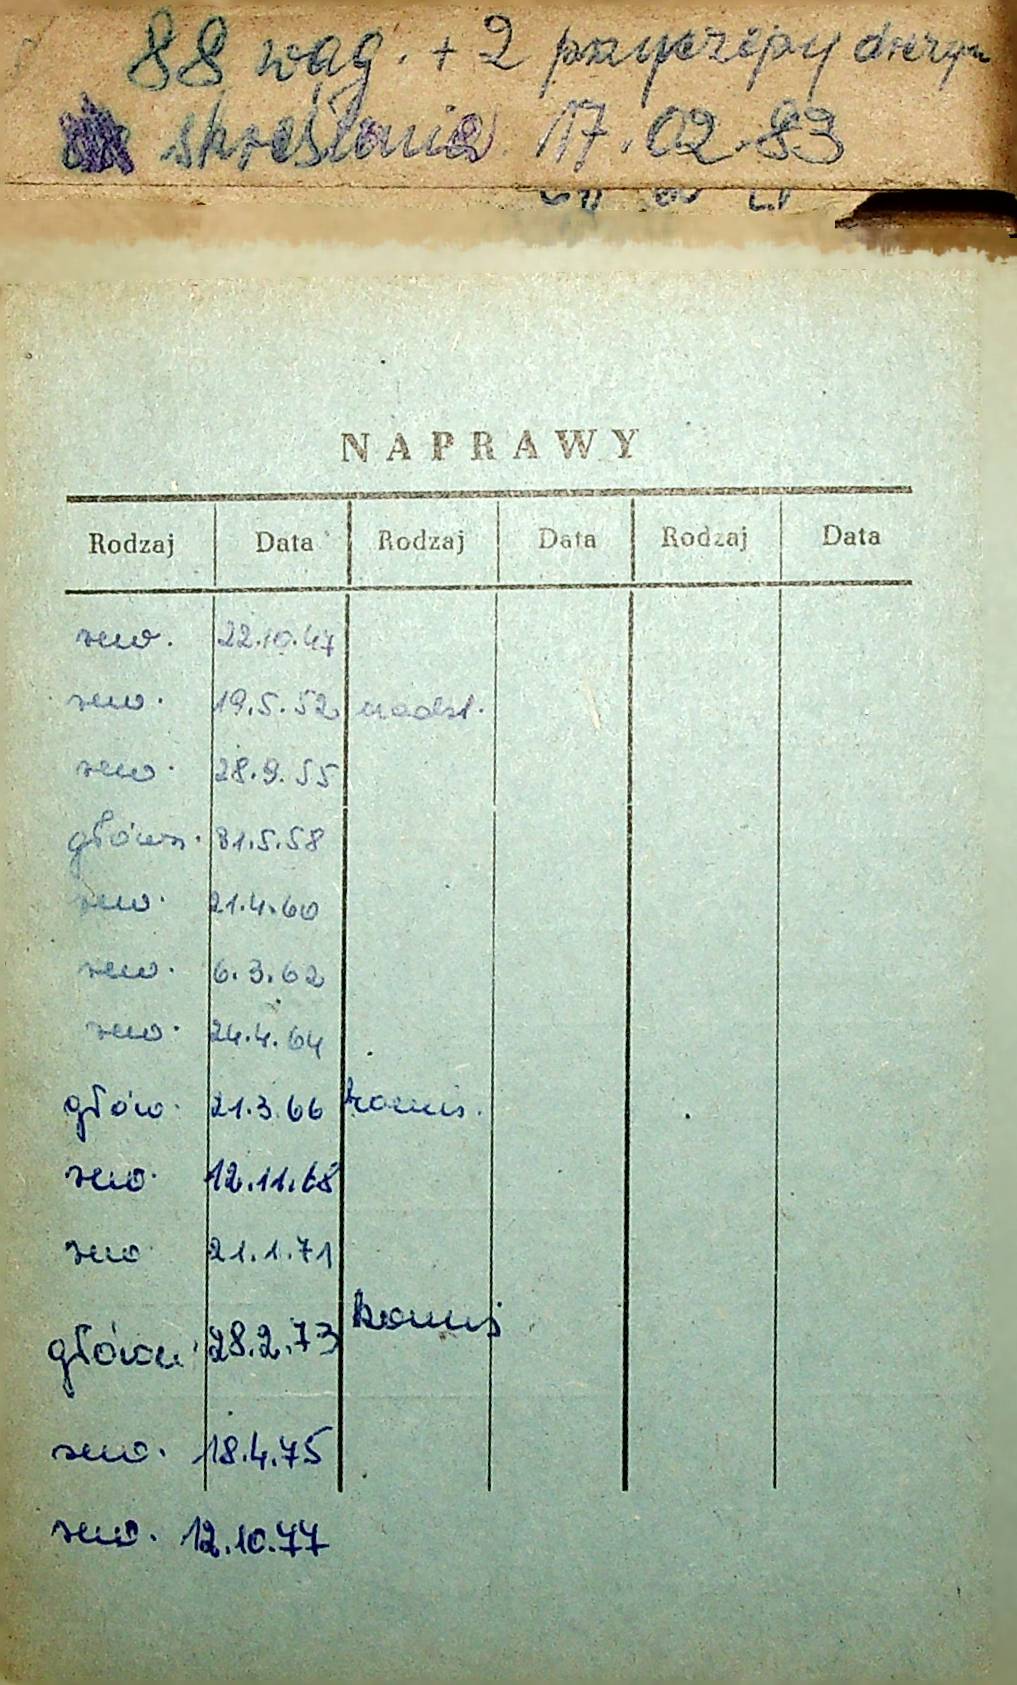 88 wag. + 2 przyczepy
skreślania 17.02.83
NAPRAWY
Rodzaj Data Rodzaj Data Rodzaj Data
rew. 22.10.47
rew. 19.5.52
rew. 28.9.55
główn. 31.5.58
rew. 21.4.60
rew. 6.3.62
rew. 24.4.64
głów. 21.3.66 komis.
rew. 12.11.68
rew 21.1.71
główn. 28.2.73 komis
rew. 18.4.75
rew. 12.10.77